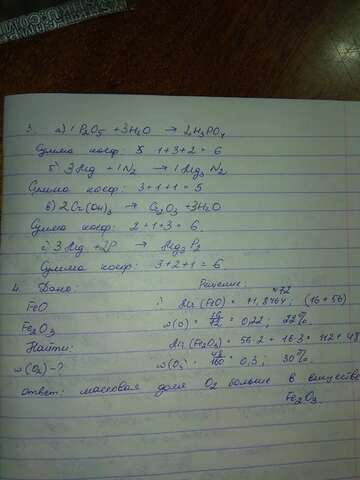 3. а) 1P₂O₅ + 3H₂O → 2H₃PO₄
Сумма коэф: 1+3+2 = 6
б) 3Mg + 1N₂ → 1Mg₃N₂
Сумма коэф: 3+1+1 = 5
в) 2Cr(OH)₃ → Cr₂O₃ + 3H₂O
Сумма коэф: 2+1+3 = 6.
г) 3Mg + 2P → Mg₃P₂
Сумма коэф: 3+2+1 = 6.
4. Дано: Решение:
FeO Mr(FeO) = (16+56)
Fe₂O₃ w(O) = 16/72 = 0,22; 22%.
Найти: Mr(Fe₂O₃) = 56·2 + 16·3 = 112+48
w(O₂) -? w(O₃) = 48/160 = 0,3; 30%.
Ответ: массовая доля O₂ больше в веществе
Fe₂O₃.